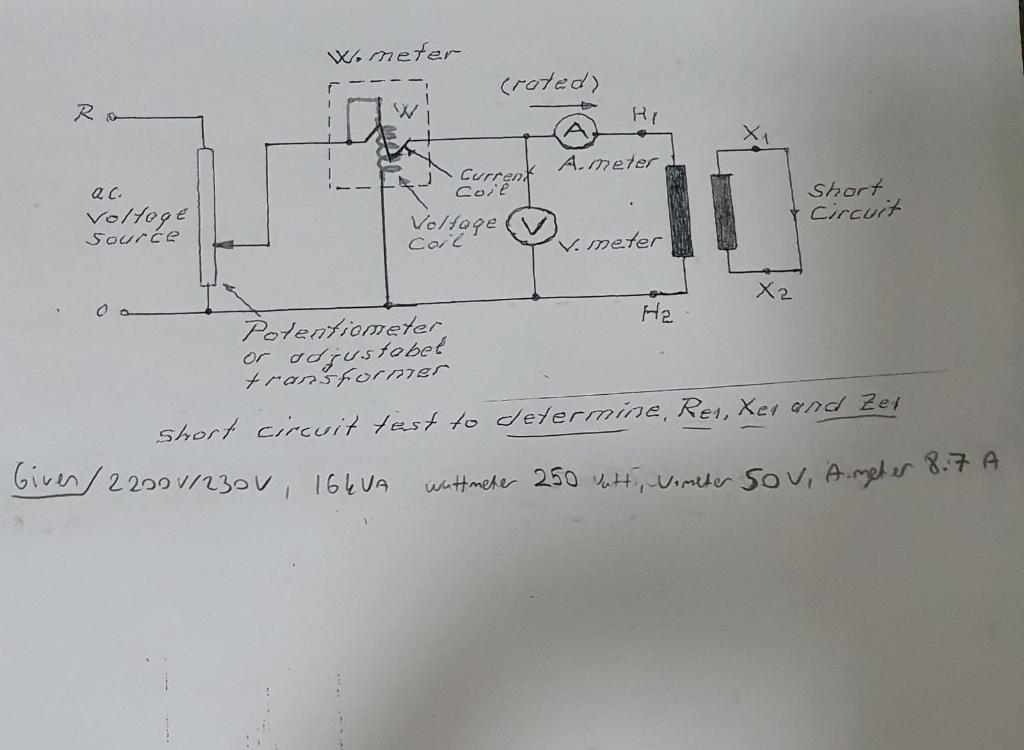 W. meter
(rated)
R
W
A
H1
X1
A. meter
Current
Coil
a.c.
Voltage
Source
Voltage
Coil
V
V. meter
Short
Circuit
X2
H2
o
Potentiometer
or adjustabel
transformer
short circuit test to determine, Re1, Xe1 and Ze1
Given/ 2200V/230V, 16kVA wattmeter 250 watt, V.meter 50V, A.meter 8.7 A